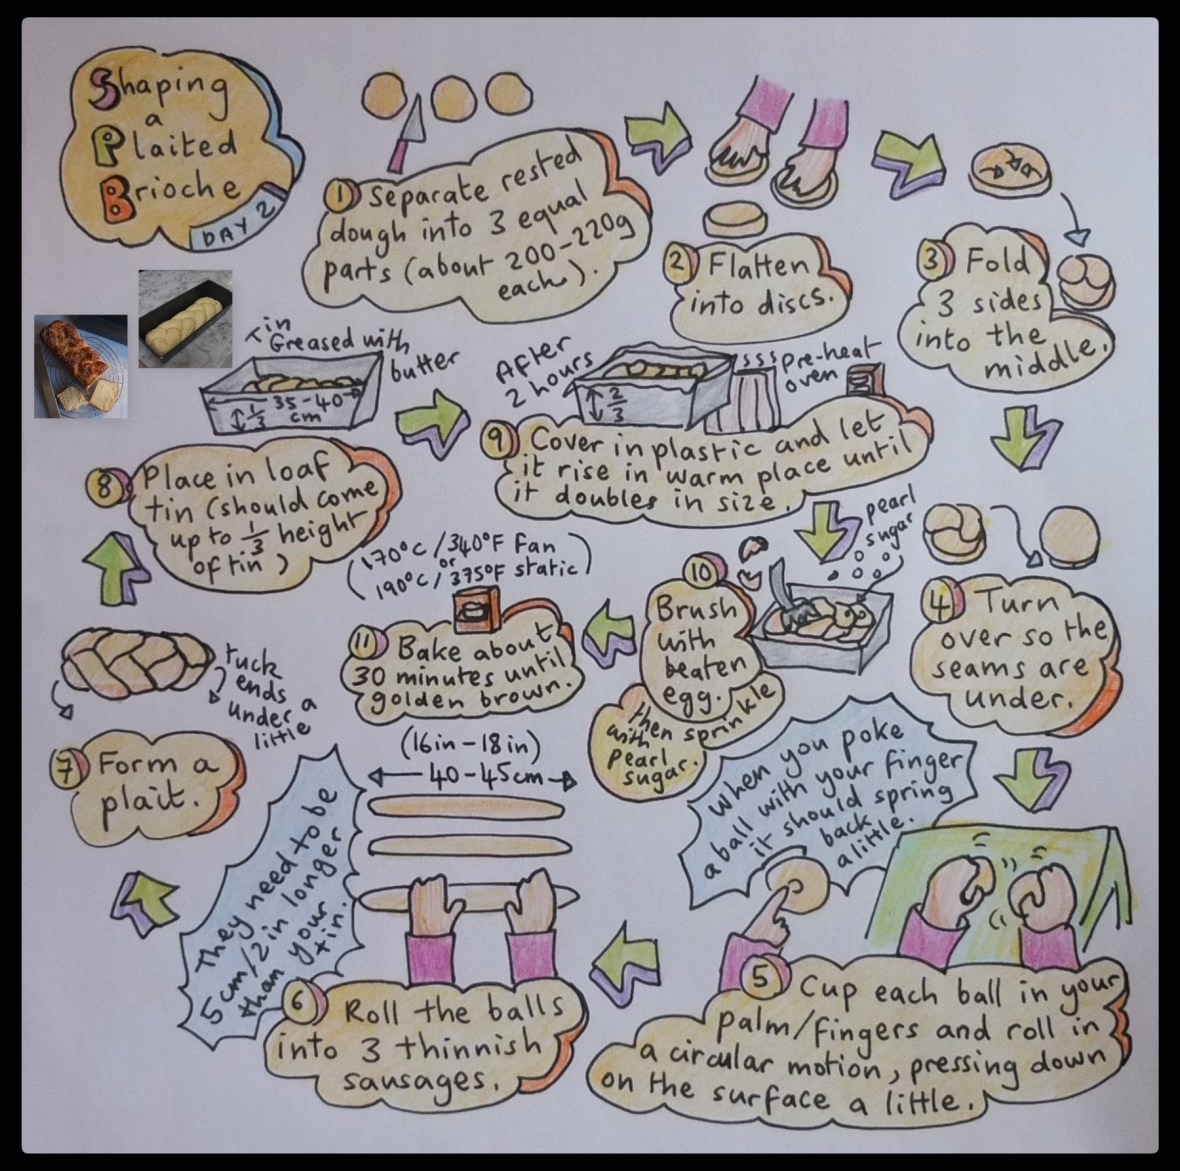 Shaping
a
Plaited
Brioche
DAY 2
1 Separate rested
dough into 3 equal
parts (about 200-220g
each).
2 Flatten
into discs.
3 Fold
3 sides
into the
middle.
4 Turn
over so the
seams are
under.
5 Cup each ball in your
palm/fingers and roll in
a circular motion, pressing down
on the surface a little.
When you poke
a ball with your finger
it should spring
back
a little.
6 Roll the balls
into 3 thinnish
sausages.
(16in-18in)
40-45cm
They need to be
5cm/2in longer
than your
tin.
7 Form a
plait.
tuck
ends
under a
little
8 Place in loaf
tin (should come
up to 1/3 height
of tin)
tin
Greased with
butter
35-40
cm
1/3
9 Cover in plastic and let
it rise in warm place until
it doubles in size.
After
2 hours
2/3
sss pre-heat
oven
10
Brush
with
beaten
egg.
then sprinkle
with
pearl
sugar.
pearl
sugar
11 Bake about
30 minutes until
golden brown.
(170°C/340°F Fan
or
190°C/375°F static)